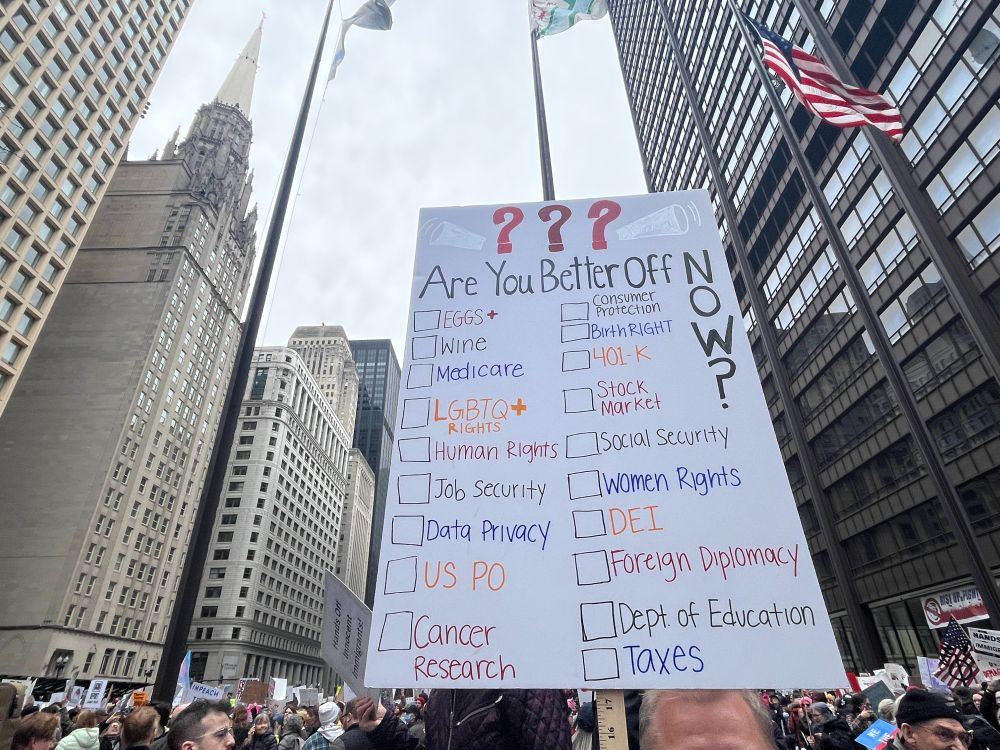 ? ? ?
Are You Better Off NOW?
EGGS+
Wine
Medicare
LGBTQ+
RIGHTS
Human Rights
Job Security
Data Privacy
US PO
Cancer
Research
Consumer
Protection
BirthRIGHT
401-K
Stock
Market
Social Security
Women Rights
DEI
Foreign Diplomacy
Dept. of Education
Taxes
Hands Off
Innocent
Immigrants!
IMPEACH
HANDS
17
16